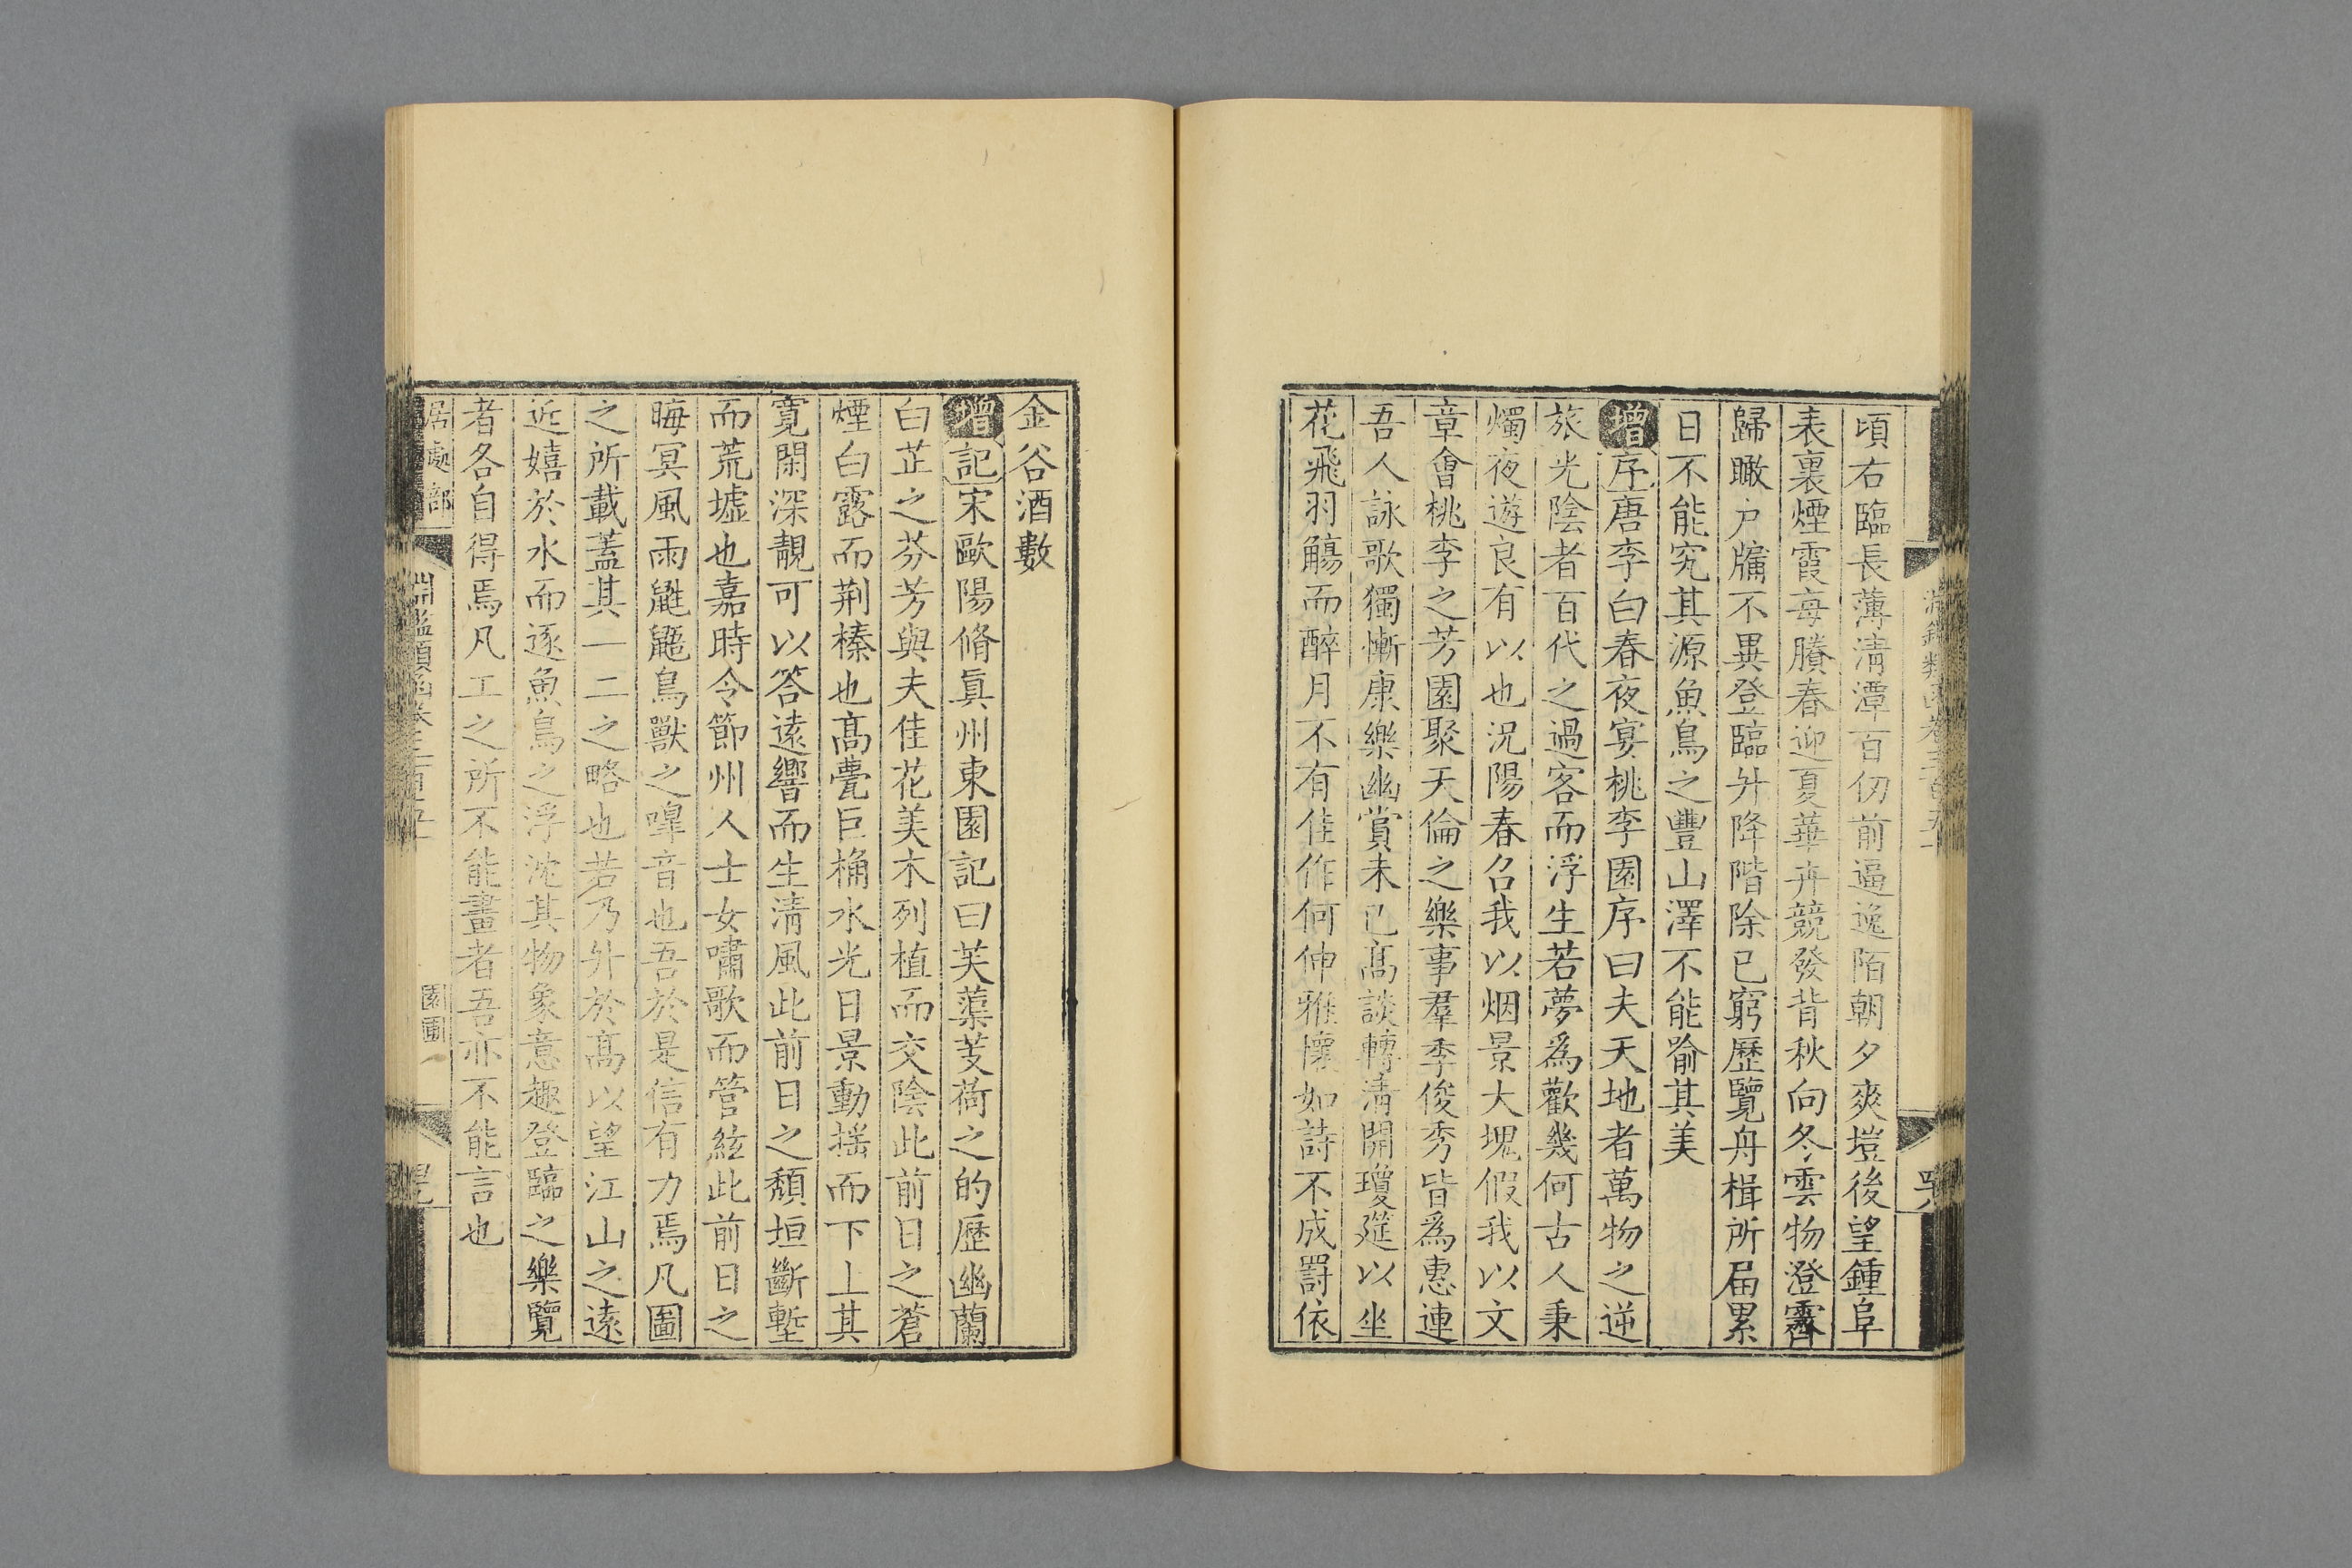 頃右臨長薄清潭百仞前逼逸陌朝夕爽塏後望鍾阜
表裏煙霞每賸春迎夏華卉競發背秋向冬雲物澄霽
歸瞰戶牖不異登臨升降階除已窮歷覽舟楫所届累
日不能究其源魚鳥之豐山澤不能踰其美
增序唐李白春夜宴桃李園序曰夫天地者萬物之逆
旅光陰者百代之過客而浮生若夢爲歡幾何古人秉
燭夜遊良有以也況陽春召我以烟景大塊假我以文
章會桃李之芳園聚天倫之樂事羣季俊秀皆爲惠連
吾人詠歌獨慚康樂幽賞未已高談轉清開瓊筵以坐
花飛羽觴而醉月不有佳作何伸雅懷如詩不成罰依
金谷酒數
增記宋歐陽脩眞州東園記曰芙蕖芰荷之的歷幽蘭
白芷之芬芳與夫佳花美木列植而交陰此前日之蒼
煙白露而荆榛也高甍巨桷水光日景動揺而下上其
寛閑深靚可以答遠響而生清風此前日之頽垣斷塹
而荒墟也嘉時令節州人士女嘯歌而管絃此前日之
晦冥風雨鼪鼯鳥獸之嘷音也吾於是信有力焉凡圖
之所載蓋其一二之略也若乃升於高以望江山之遠
近嬉於水而逐魚鳥之浮沈其物象意趣登臨之樂覽
者各自得焉凡工之所不能畫者吾亦不能言也
居處部
園圃